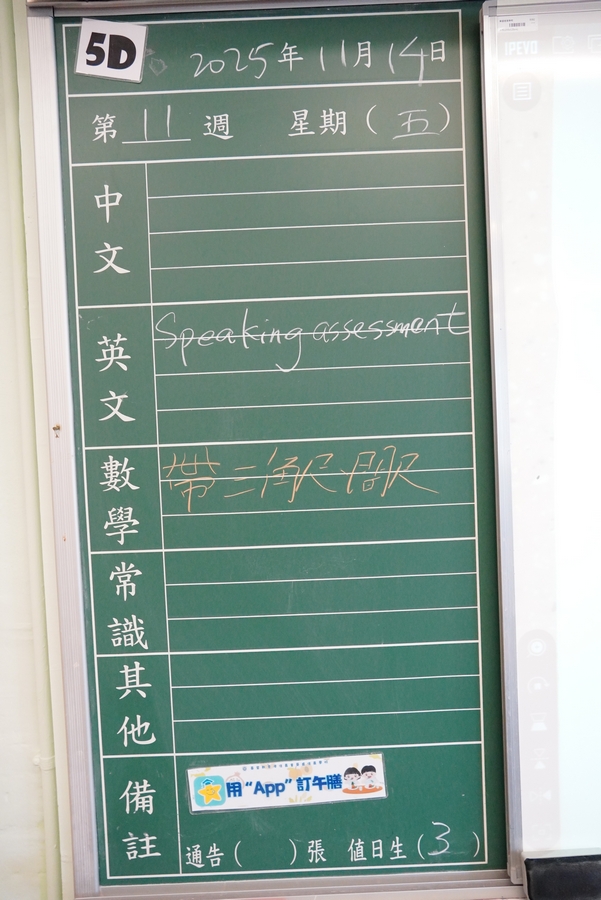 5D
2025年11月14日
第 11 週 星期(五)
中文
英文
Speaking assessment
數學
帶三角尺、間尺
常識
其他
備註
用“App”訂午膳
通告( )張 值日生(3)
IPEVO